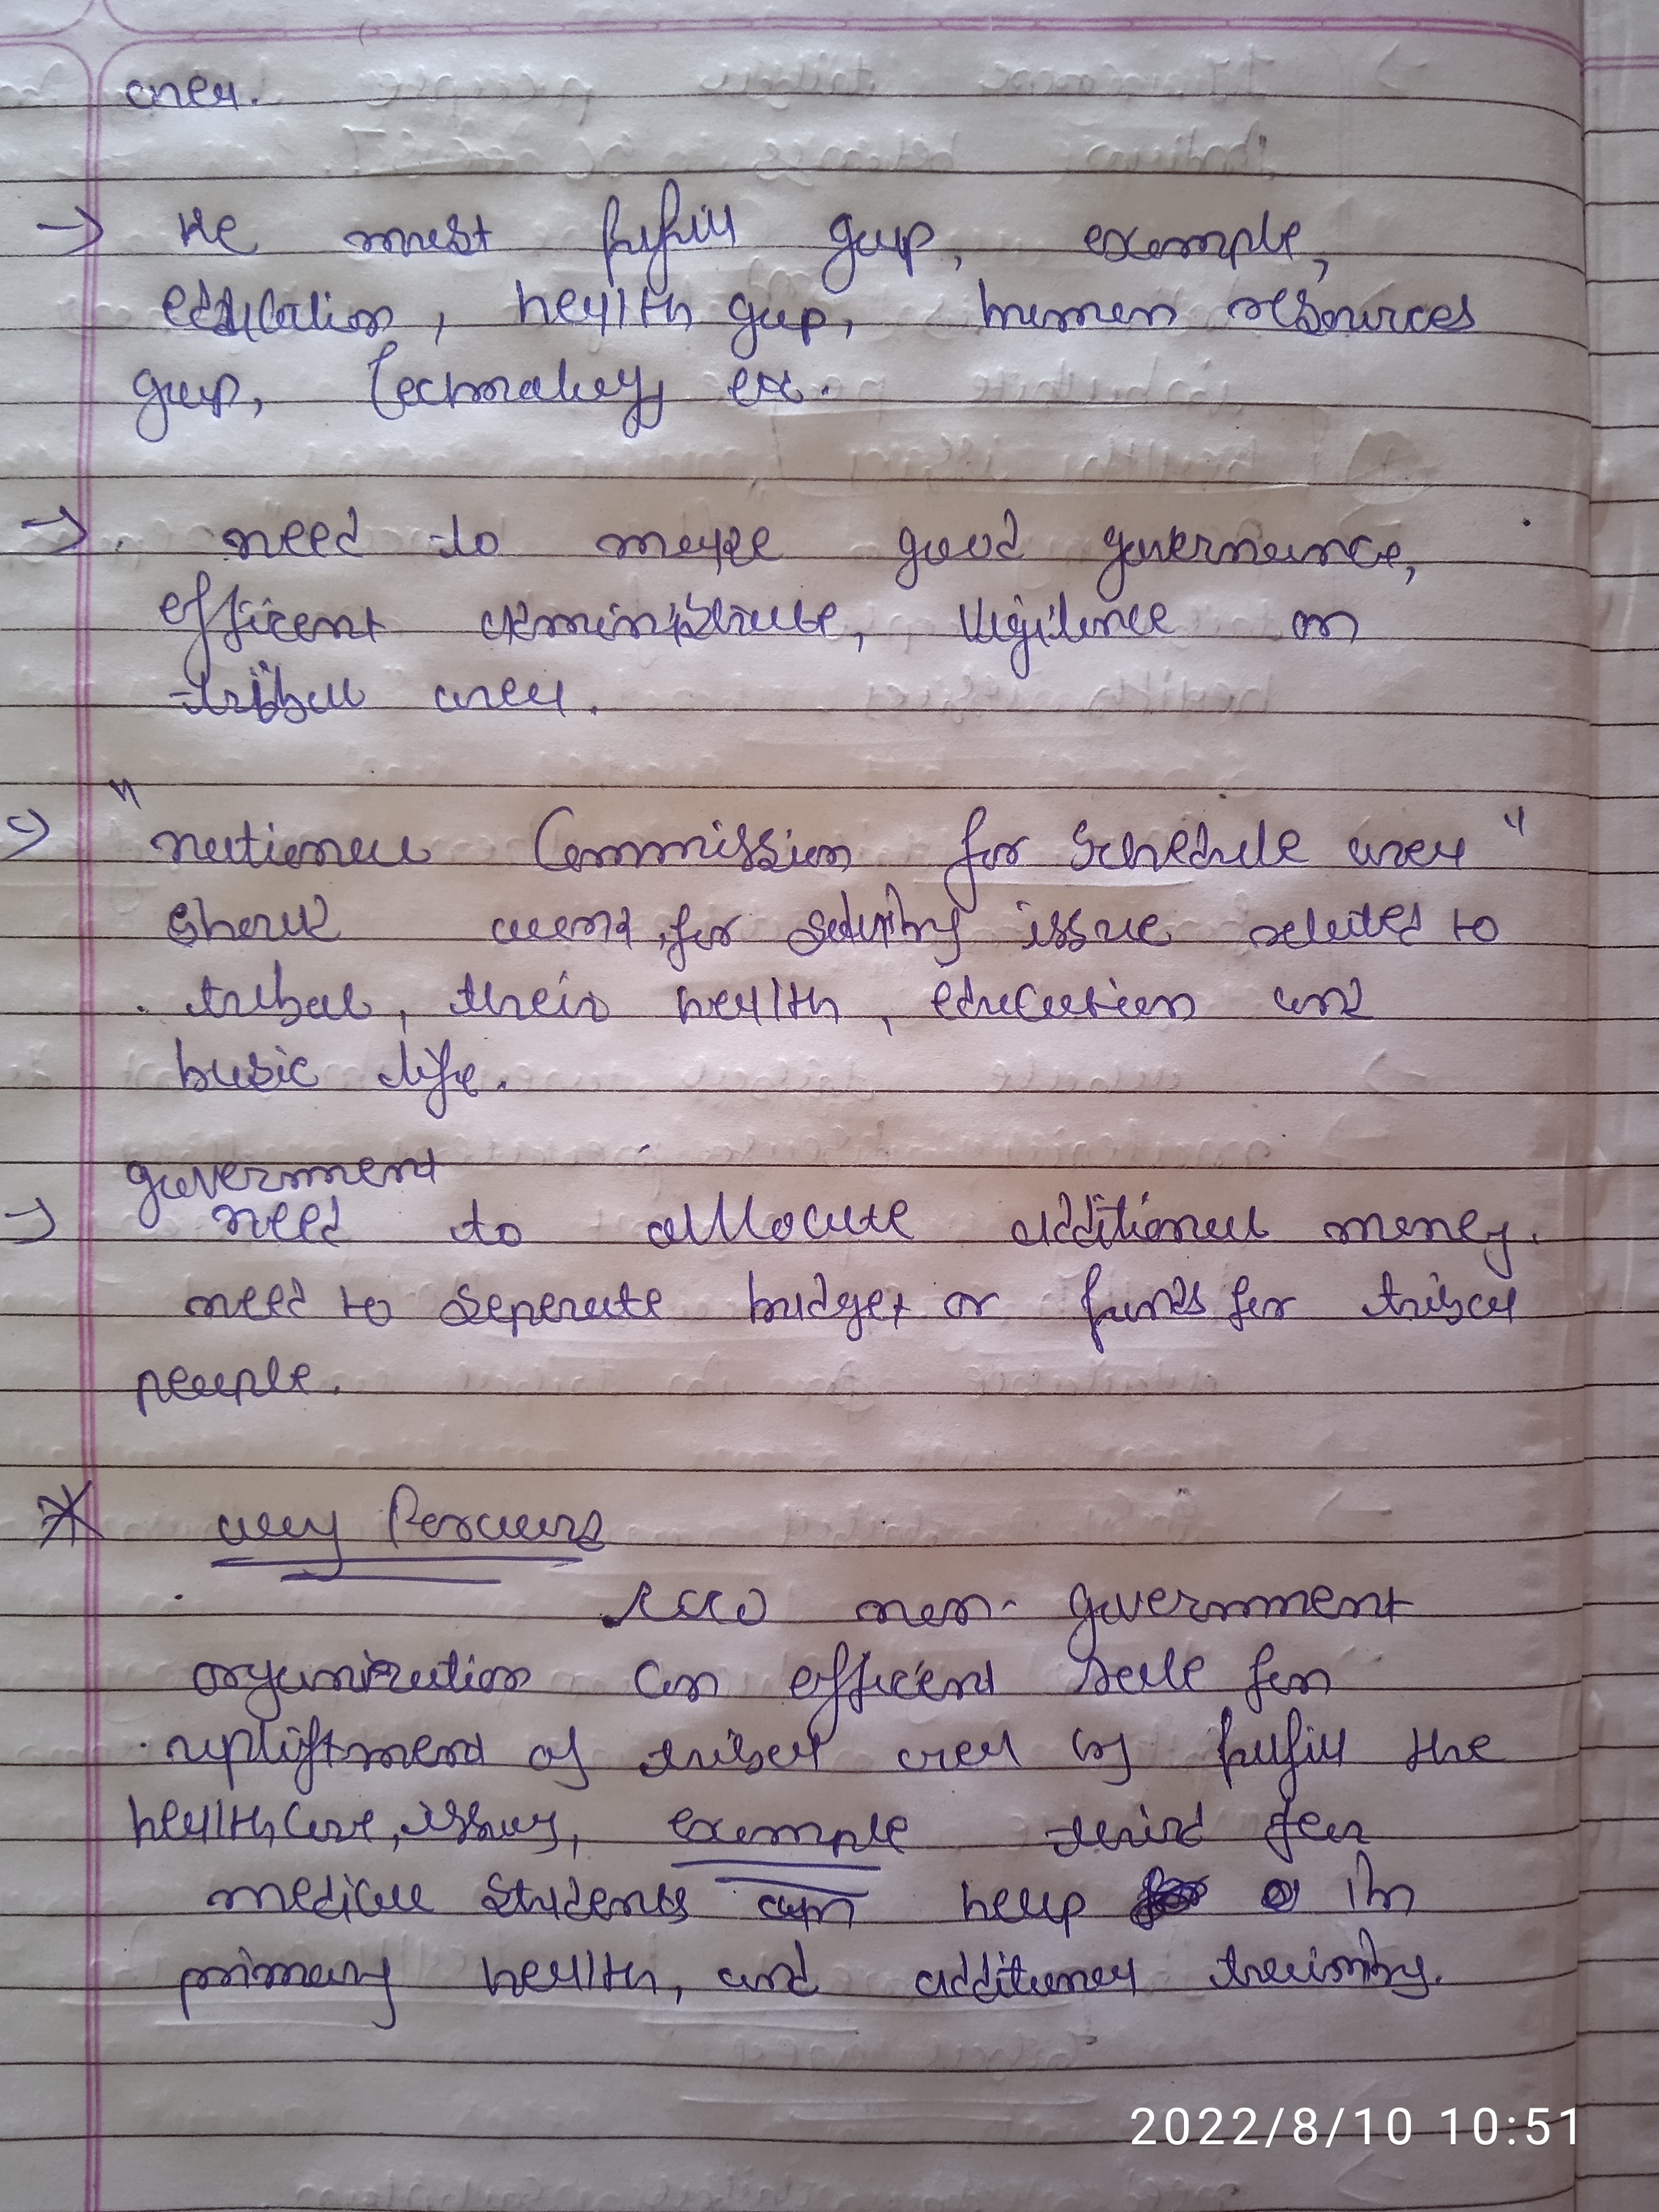 area.
→ He must fulfill gap, example,
education, health gap, human resources
gap, Technology etc.
→ need to make good governance,
efficent administrate, vigilence on
tribal area.
→ "national Commission for Schedule area"
should for solving issue related to
tribal, their health, education and
basic life.
government
→ need to allocate additional money.
need to seperate budget or funds for tribal
people.
* way Forward
non-government
organization can efficent role for
upliftment of tribal area by fulfill the
healthcare, issues, example third year
medical students can help in
primary health, and additional training.
2022/8/10 10:51